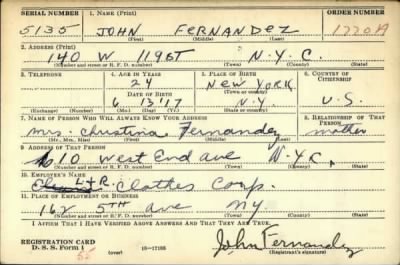 SERIAL NUMBER 1. NAME (Print) ORDER NUMBER
5135 JOHN FERNANDEZ 1770A
(First) (Middle) (Last)
2. ADDRESS (Print)
140 W 119ST N.Y.C.
(Number and street or R. F. D. number) (Town) (County) (State)
3. TELEPHONE 4. AGE IN YEARS 5. PLACE OF BIRTH 6. COUNTRY OF CITIZENSHIP
24 NEW YORK
(Town or county)
DATE OF BIRTH
6 13 '17 N.Y U.S.
(Exchange) (Number) (Mo.) (Day) (Yr.) (State or country)
7. NAME OF PERSON WHO WILL ALWAYS KNOW YOUR ADDRESS 8. RELATIONSHIP OF THAT PERSON
Mrs. Christina Fernandez mother
(Mr., Mrs., Miss) (First) (Middle) (Last)
9. ADDRESS OF THAT PERSON
10 West End Ave N.Y.C.
(Number and street or R. F. D. number) (Town) (County) (State)
10. EMPLOYER'S NAME
L+R. Clothes Corp.
11. PLACE OF EMPLOYMENT OR BUSINESS
162 5TH ave NY
(Number and street or R. F. D. number) (Town) (County) (State)
I AFFIRM THAT I HAVE VERIFIED ABOVE ANSWERS AND THAT THEY ARE TRUE.
REGISTRATION CARD
D. S. S. Form 1 16—17105 John Fernandez
(Registrant's signature)